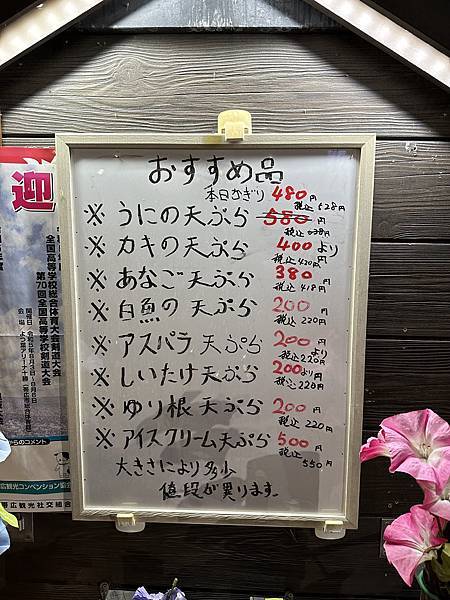 おすすめ品
本日かぎり 480円
税込 528円
※うにの天ぷら 580円
税込 638円
※カキの天ぷら 400より
税込 430円
※あなご天ぷら 380
税込 418円
※白魚の天ぷら 200円
税込 220円
※アスパラ天ぷら 200円より
税込 220円
※しいたけ天ぷら 200より
税込 220
※ゆり根天ぷら 200円
税込 220
※アイスクリーム天ぷら 500円
税込 550円
大きさにより多少
値段が異ります。
迎
全国高等学校総合体育大会剣道大会
第70回全国高等学校剣道大会
からのコメント
広観光コンベンション協会
帯広観光社交組合